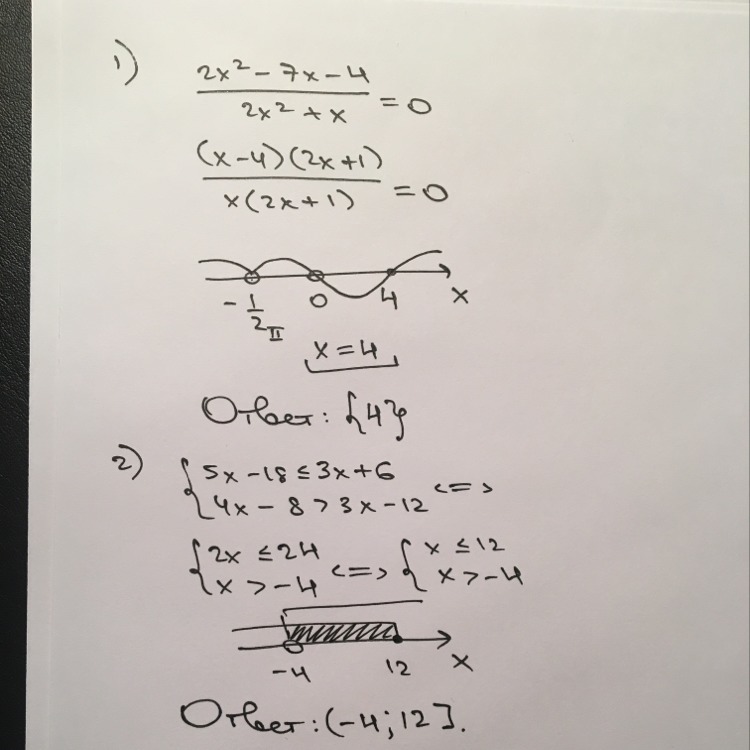 1)
2x² - 7x - 4 / 2x² + x = 0
(x-4)(2x+1) / x(2x+1) = 0
-1/2 II 0 4 x
x = 4
Ответ: {4}
2)
{ 5x - 18 ≤ 3x + 6
4x - 8 > 3x - 12 <=>
{ 2x ≤ 24
x > -4 <=> { x ≤ 12
x > -4
-4 12 x
Ответ: (-4; 12].